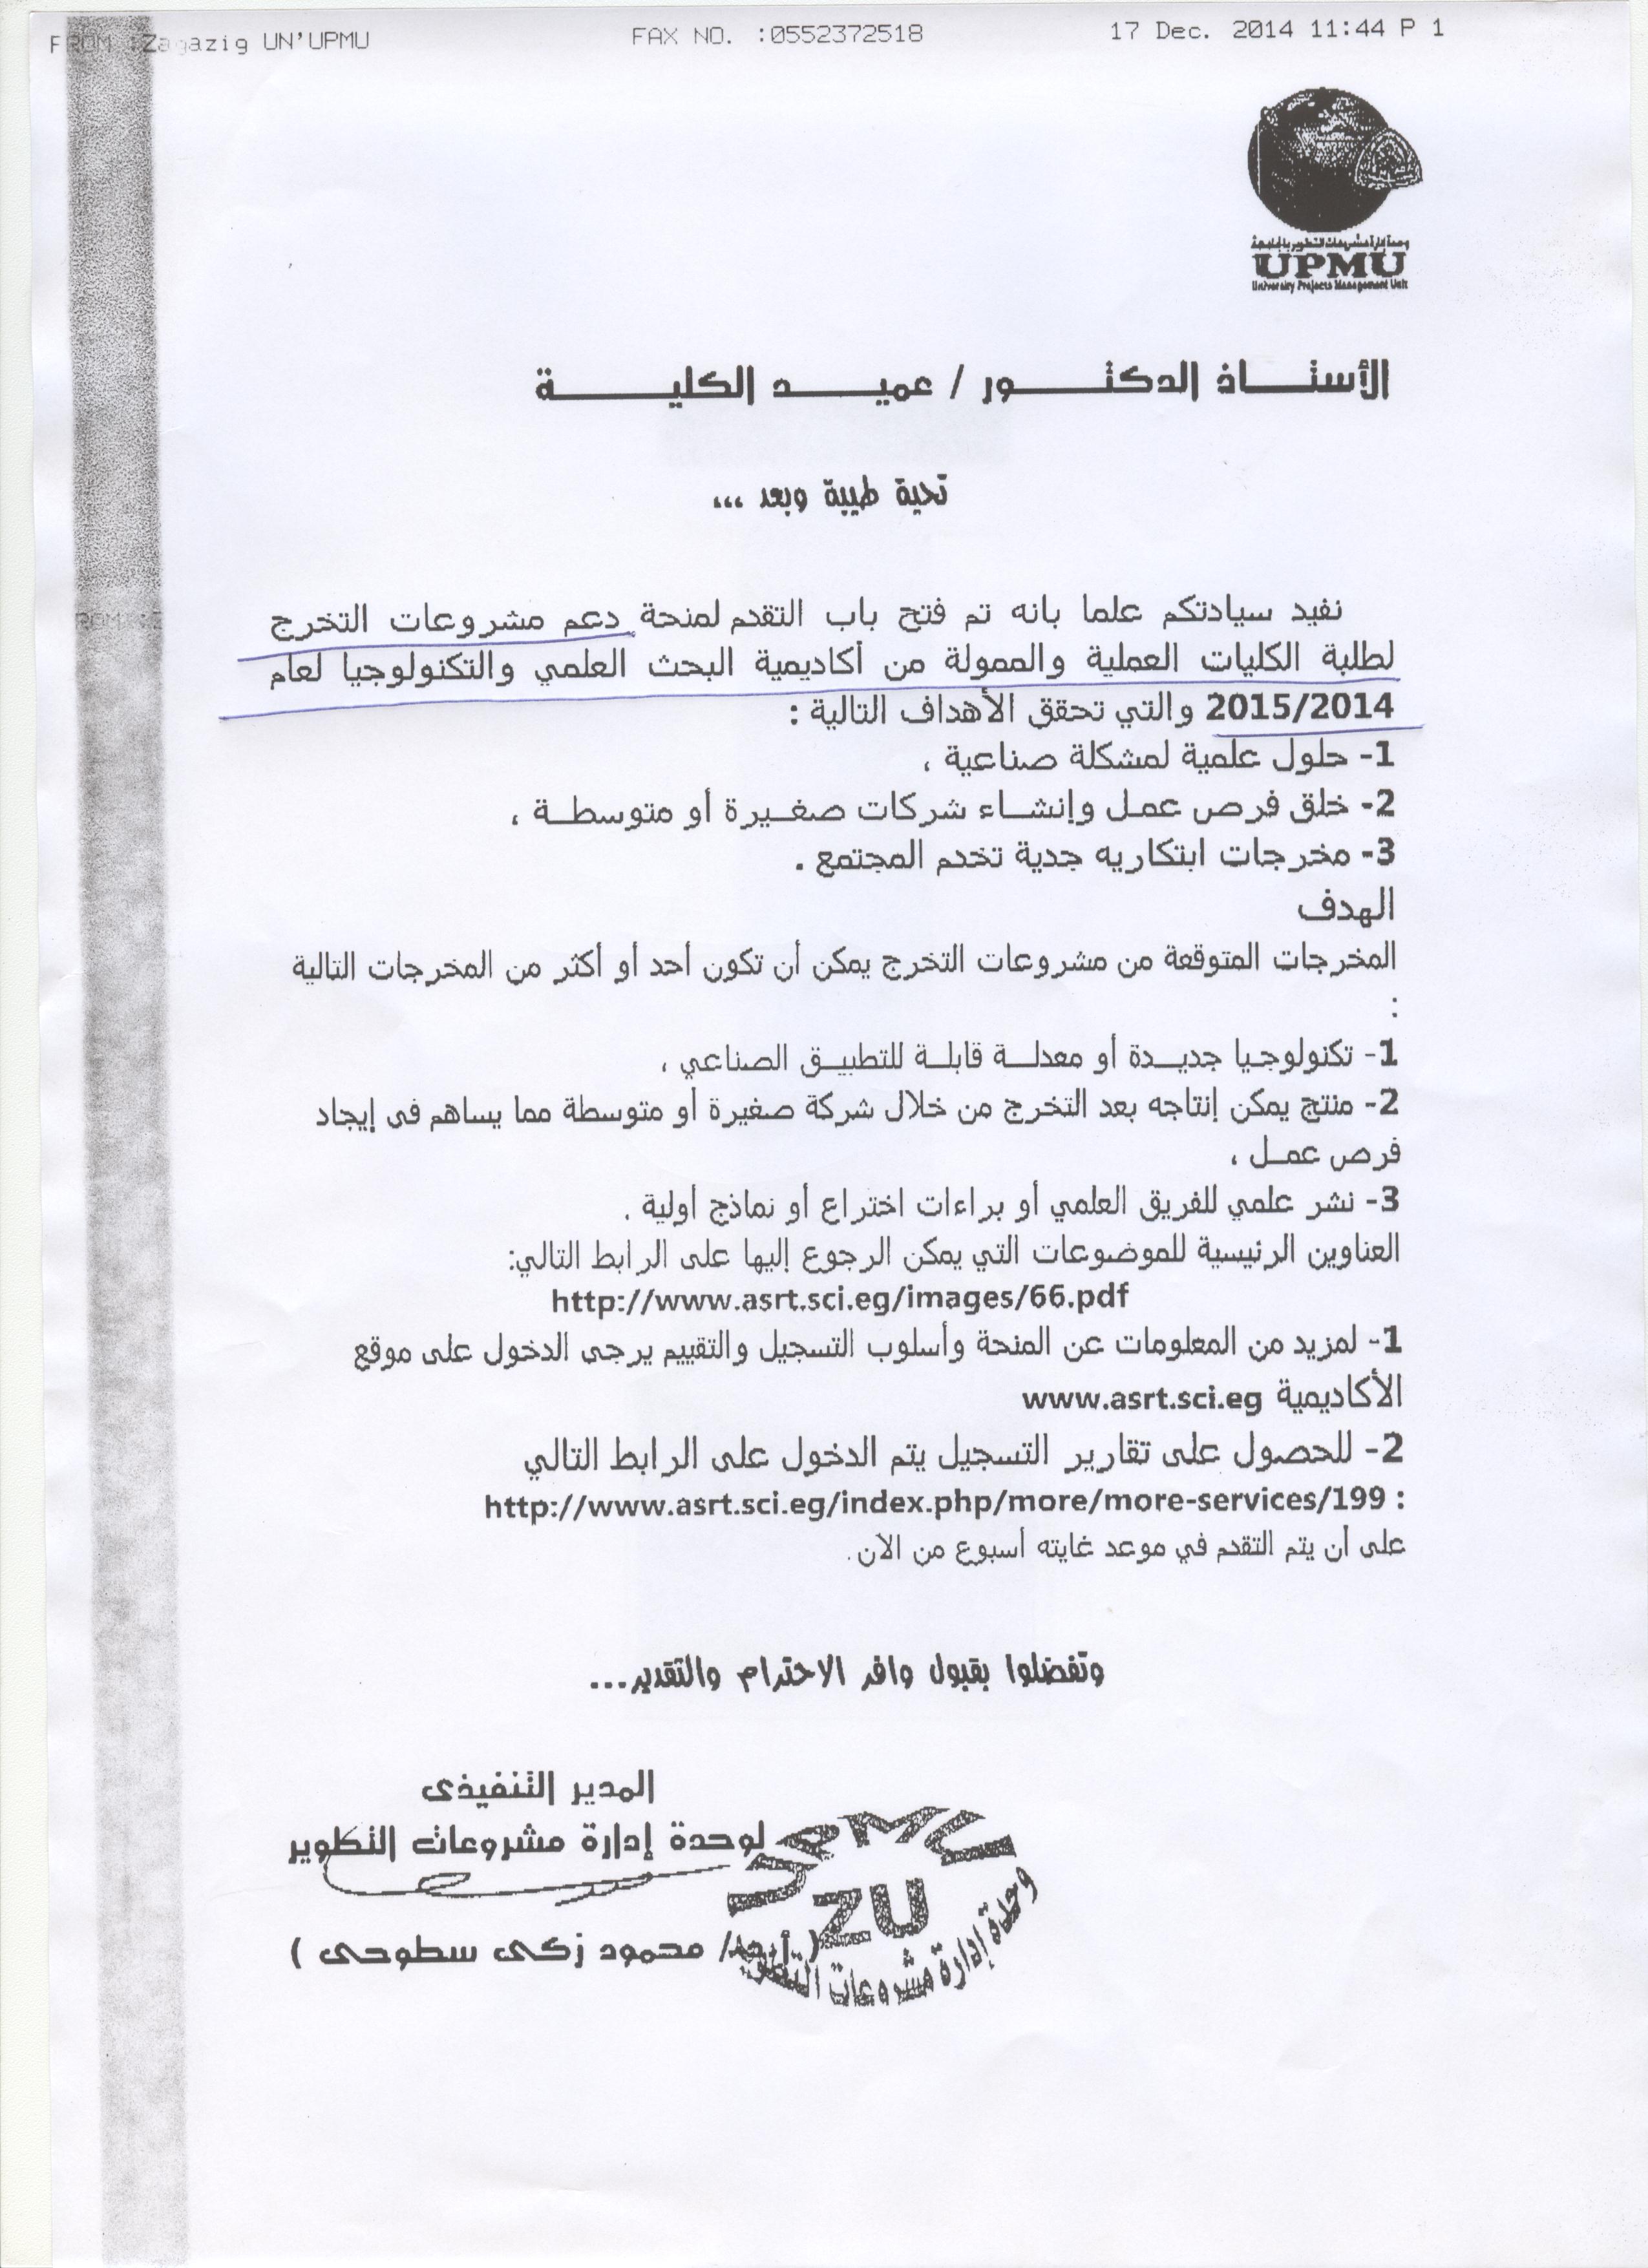 FROM :Zagazig UN'UPMU FAX NO. :0552372518 17 Dec. 2014 11:44 P 1
وحدة إدارة مشروعات التطوير بالجامعة
UPMU
University Projects Management Unit
الأستاذ الدكتور / عميد الكلية
تحية طيبة وبعد ...
نفيد سيادتكم علما بانه تم فتح باب التقدم لمنحة دعم مشروعات التخرج
لطلبة الكليات العملية والممولة من أكاديمية البحث العلمي والتكنولوجيا لعام
2015/2014 والتي تحقق الأهداف التالية :
1- حلول علمية لمشكلة صناعية ،
2- خلق فرص عمل وإنشاء شركات صغيرة أو متوسطة ،
3- مخرجات ابتكاريه جدية تخدم المجتمع .
الهدف
المخرجات المتوقعة من مشروعات التخرج يمكن أن تكون أحد أو أكثر من المخرجات التالية
:
1- تكنولوجيا جديدة أو معدلة قابلة للتطبيق الصناعي ،
2- منتج يمكن إنتاجه بعد التخرج من خلال شركة صغيرة أو متوسطة مما يساهم فى إيجاد
فرص عمل ،
3- نشر علمي للفريق العلمي أو براءات اختراع أو نماذج أولية .
العناوين الرئيسية للموضوعات التي يمكن الرجوع إليها على الرابط التالي:
http://www.asrt.sci.eg/images/66.pdf
1- لمزيد من المعلومات عن المنحة وأسلوب التسجيل والتقييم يرجى الدخول على موقع
الأكاديمية www.asrt.sci.eg
2- للحصول على تقارير التسجيل يتم الدخول على الرابط التالي
: http://www.asrt.sci.eg/index.php/more/more-services/199
على أن يتم التقدم في موعد غايته أسبوع من الان.
وتفضلوا بقبول وافر الاحترام والتقدير...
المدير التنفيذى
لوحدة إدارة مشروعات التطوير
( محمود زكى سطوحى )
UPMU
ZU
وحدة إدارة مشروعات التطوير